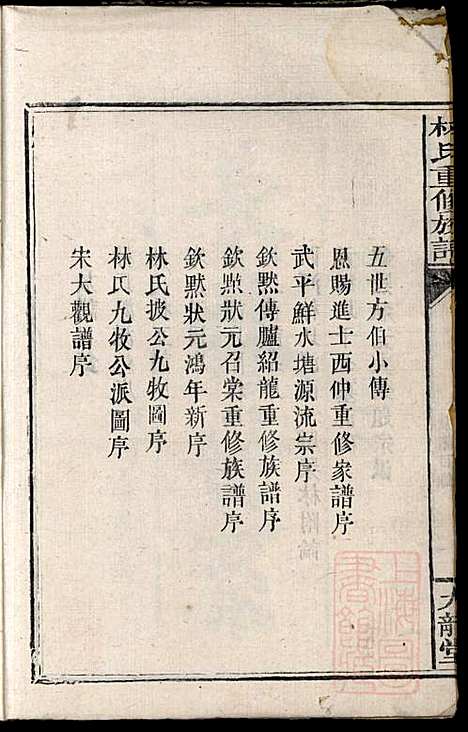 林氏重修族譜
五世方伯小傳
恩賜進士西仲重修家譜序
武平鮮水塘源流宗序
欽點傳臚紹龍重修族譜序
欽點狀元召棠重修族譜序
欽點狀元鴻年新序
林氏披公九牧圖序
林氏九牧公派圖序
宋大觀譜序
九龍堂